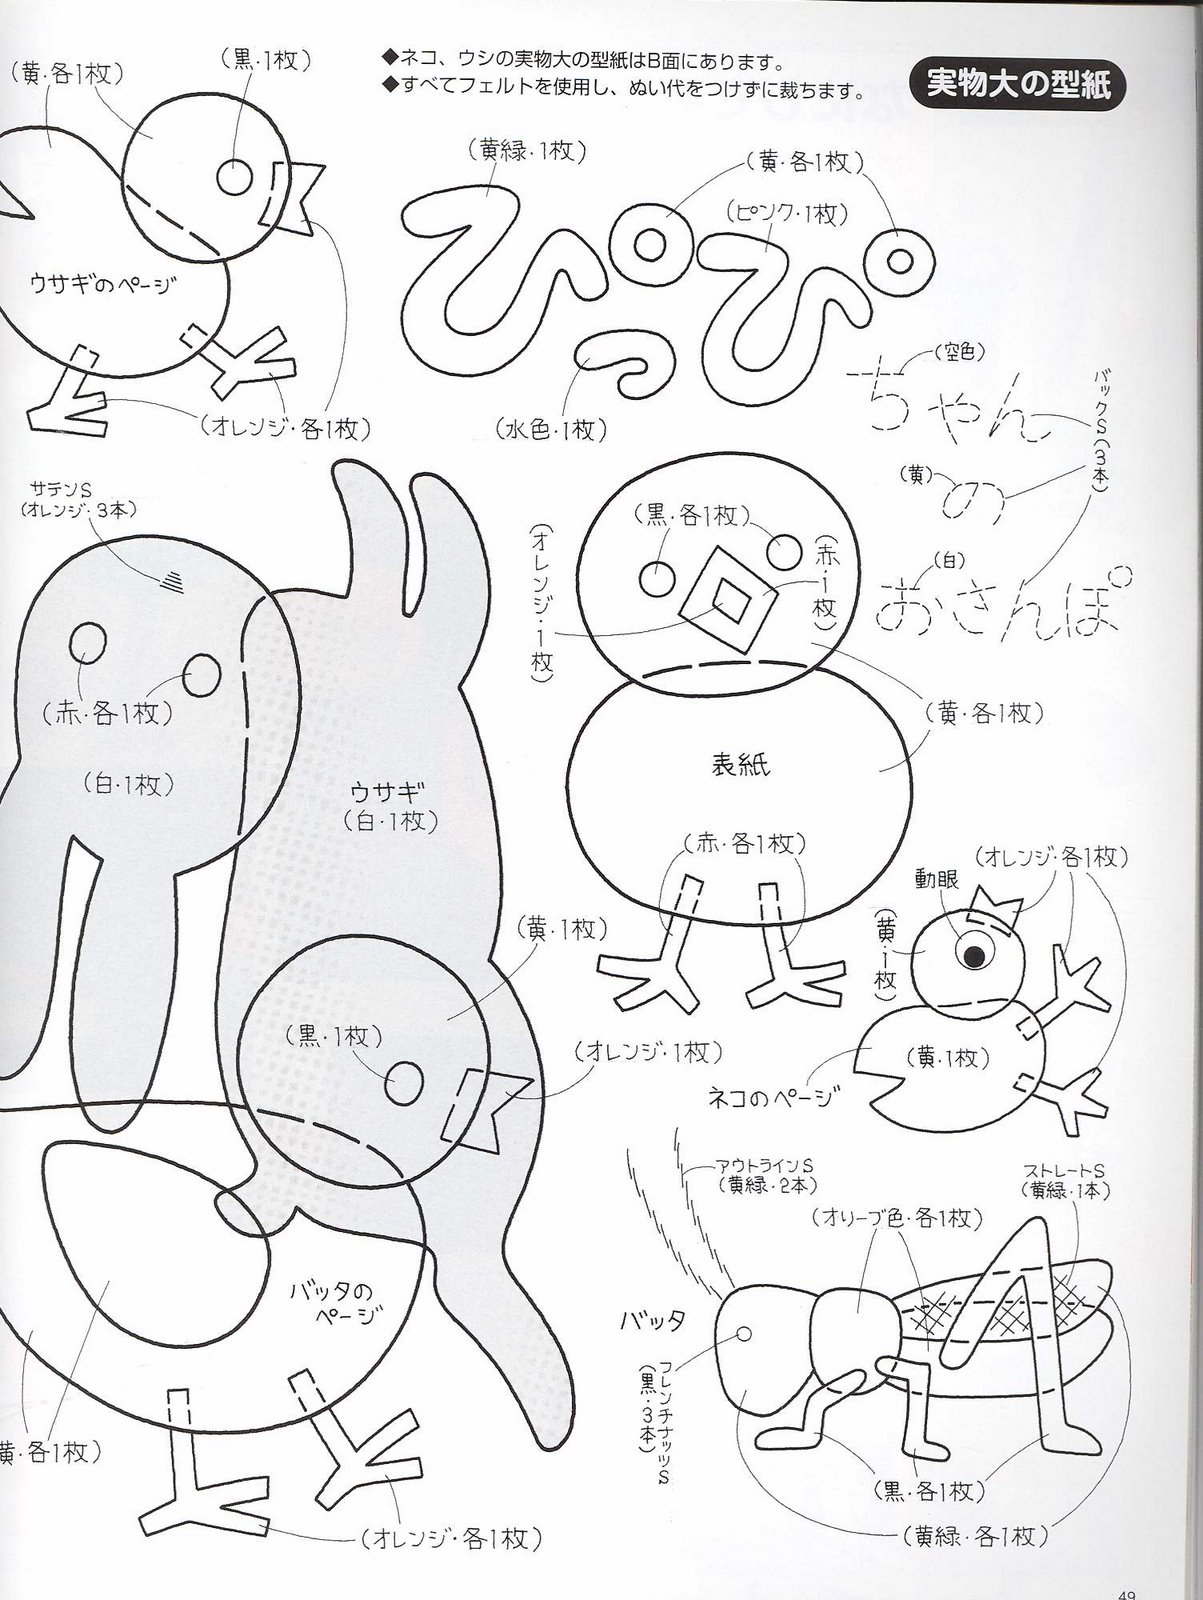 ◆ネコ、ウシの実物大の型紙はB面にあります。
◆すべてフェルトを使用し、ぬい代をつけずに裁ちます。
実物大の型紙
(黄・各1枚)
(黒・1枚)
ウサギのページ
(オレンジ・各1枚)
(黄緑・1枚)
(黄・各1枚)
(ピンク・1枚)
ぴっぴ
(水色・1枚)
(空色)
ちゃん
バックS(3本)
(黄)
の
(白)
おさんぽ
サテンS
(オレンジ・3本)
(赤・各1枚)
(白・1枚)
ウサギ
(白・1枚)
(オレンジ・1枚)
(黒・各1枚)
(赤・1枚)
(黄・各1枚)
表紙
(赤・各1枚)
(オレンジ・各1枚)
動眼
(黄・1枚)
(黄・1枚)
ネコのページ
(黄・1枚)
(黒・1枚)
(オレンジ・1枚)
バッタの
ページ
黄・各1枚)
(オレンジ・各1枚)
アウトラインS
(黄緑・2本)
ストレートS
(黄緑・1本)
(オリーブ色・各1枚)
バッタ
フレンチナッツS
(黒・3本)
(黒・各1枚)
(黄緑・各1枚)
49